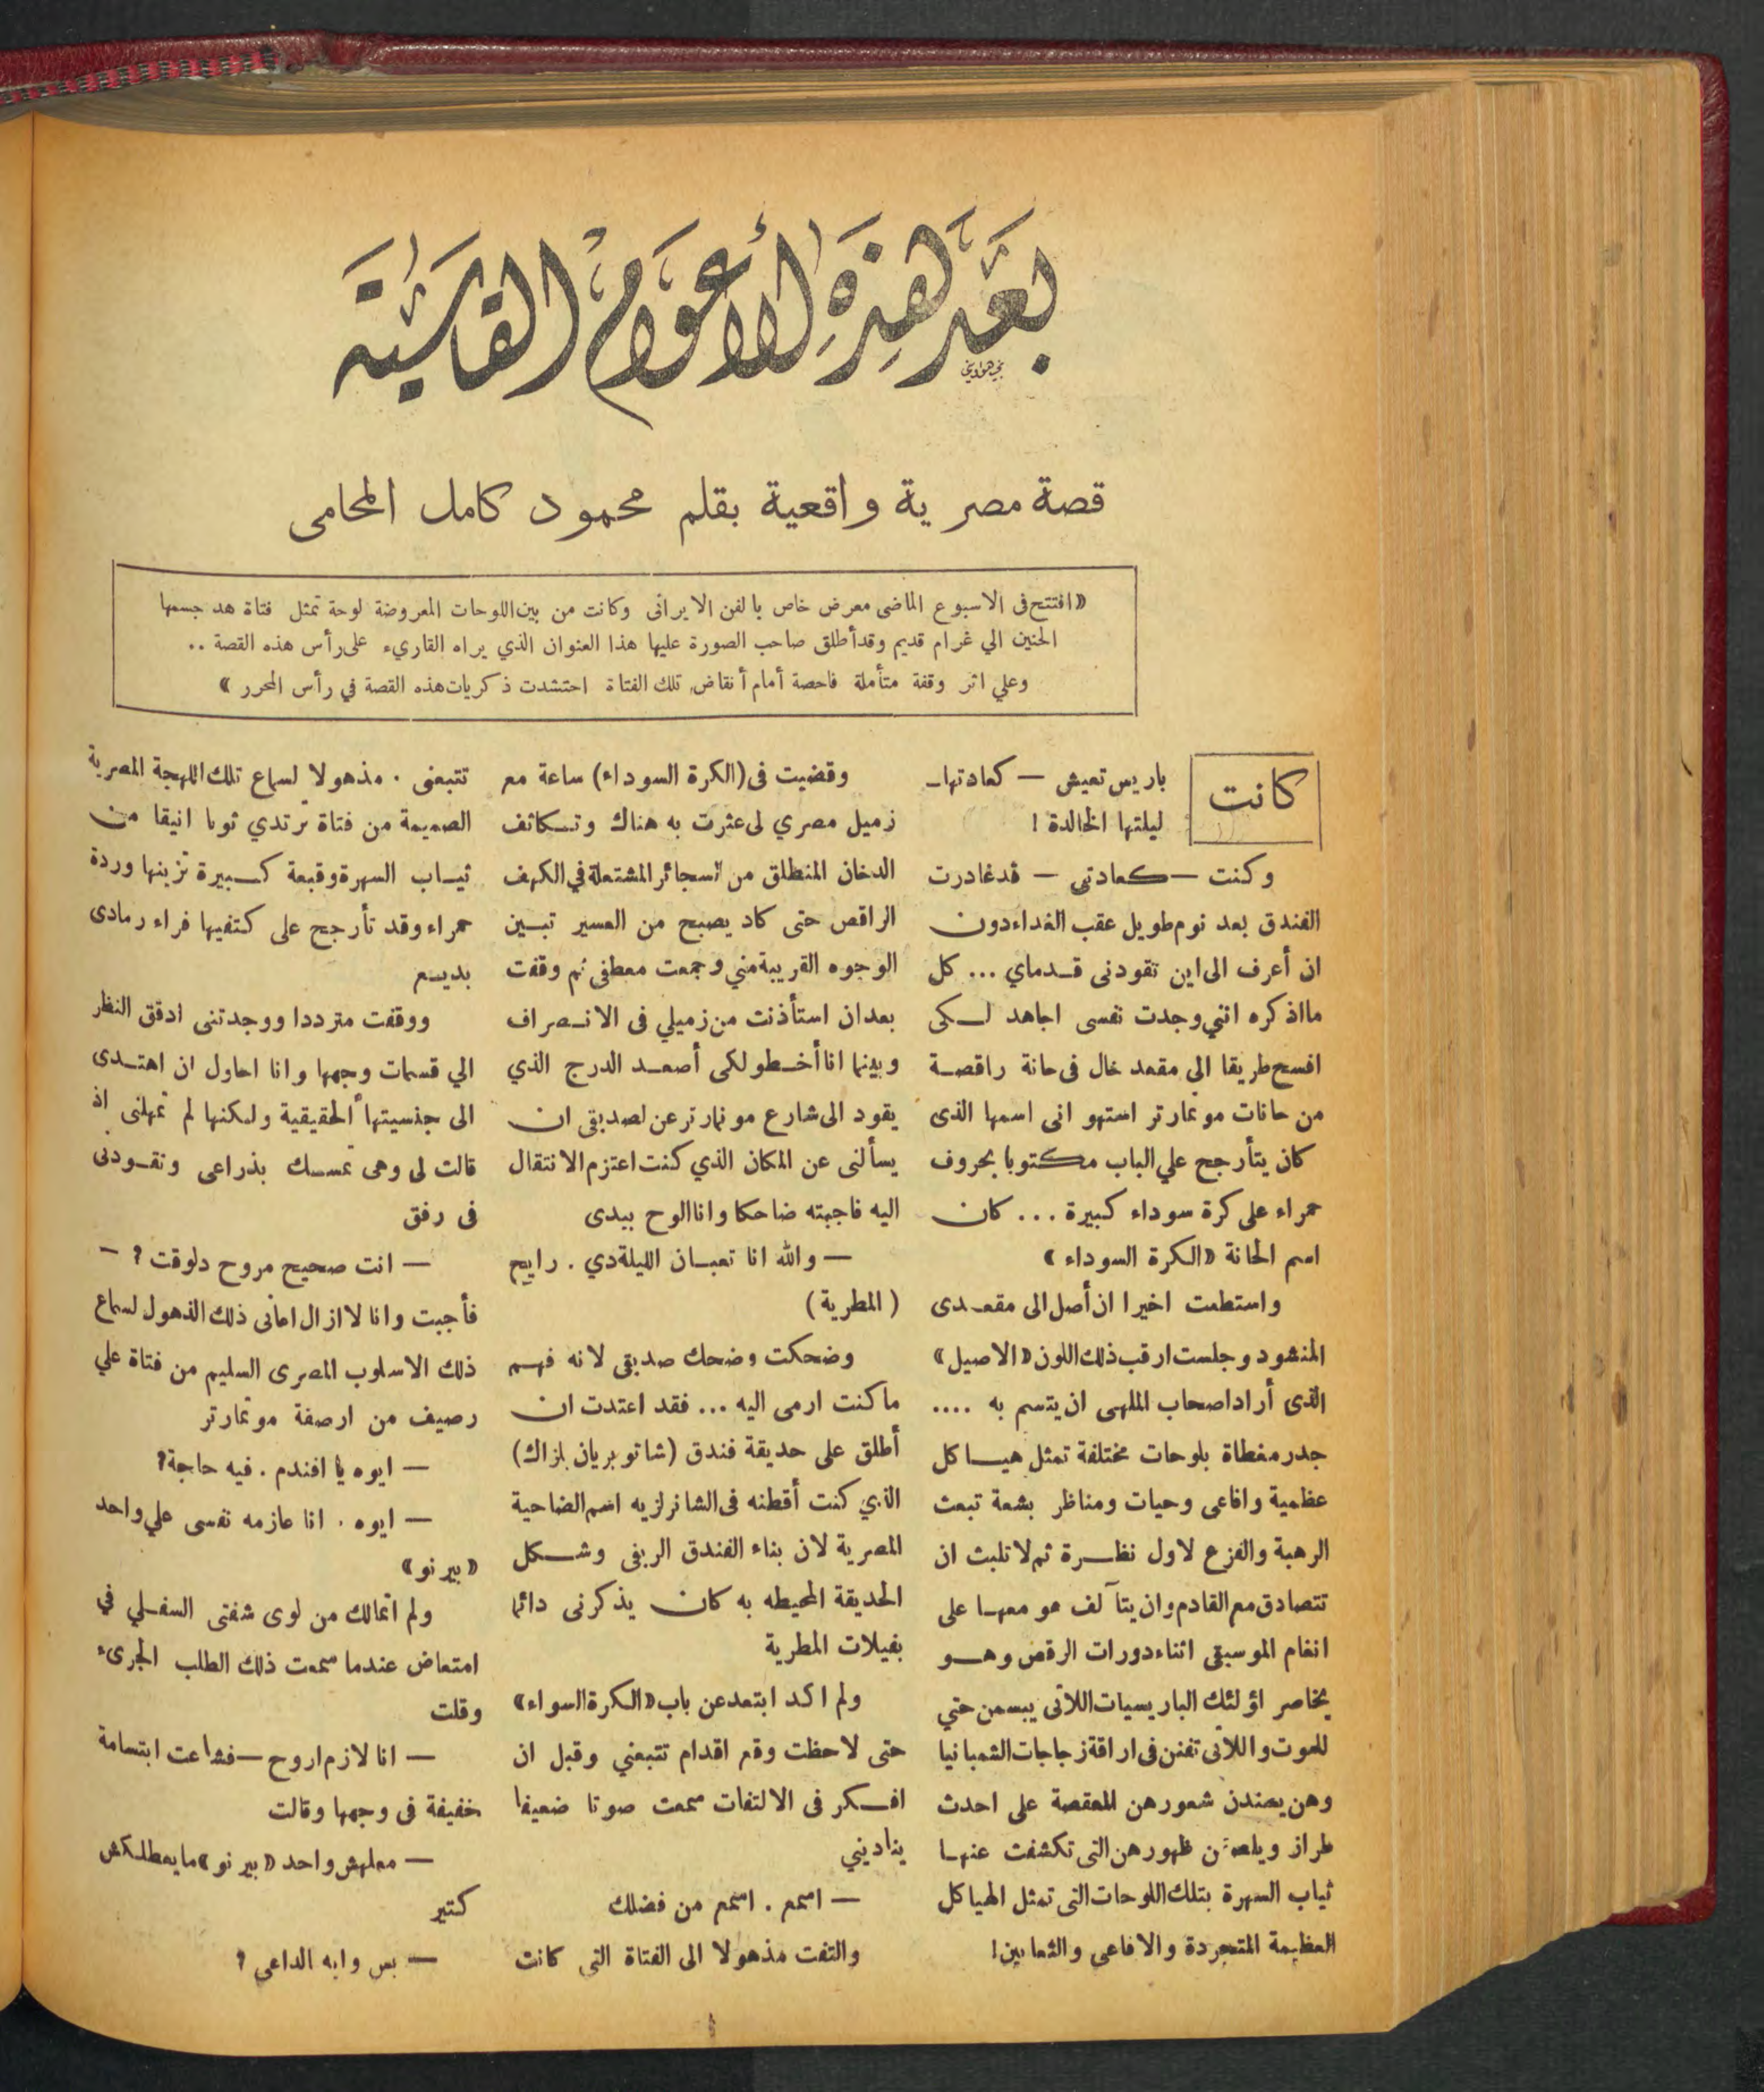 بَعْدَ هٰذِهِ الأَعْوَامِ القَاسِيَةِ
قصة مصرية واقعية بقلم محمود كامل المحامى
«افتتح فى الاسبوع الماضى معرض خاص بالفن الايرانى وكانت من بين اللوحات المعروضة لوحة تمثل فتاة هد جسمها
الحنين الي غرام قديم وقد أطلق صاحب الصورة عليها هذا العنوان الذي يراه القاريء على رأس هذه القصة ..
وعلي اثر وقفة متأملة فاحصة أمام أنقاض تلك الفتاة احتشدت ذكريات هذه القصة في رأس المحرر»
كانت باريس تعيش — كعادتها —
ليلتها الخالدة !
وكنت — كعادتى — قد غادرت
الفندق بعد نوم طويل عقب الغداء دون
ان أعرف الى اين تقودنى قدماي ... كل
ما اذكره انني وجدت نفسى اجاهد لكى
افسح طريقا الى مقعد خال فى حانة راقصة
من حانات مونمارتر استهوانى اسمها الذى
كان يتأرجح علي الباب مكتوبا بحروف
حمراء على كرة سوداء كبيرة ... كان
اسم الحانة «الكرة السوداء»
واستطعت اخيرا ان أصل الى مقعدى
المنشود وجلست ارقب ذلك اللون «الاصيل»
الذى أراد اصحاب الملهى ان يتسم به ....
جدر مغطاة بلوحات مختلفة تمثل هياكل
عظمية وافاعى وحيات ومناظر بشعة تبعث
الرهبة والفزع لاول نظرة ثم لا تلبث ان
تتصادق مع القادم وان يتآلف هو معها على
انغام الموسيقى اثناء دورات الرقص وهو
يخاصر اؤلئك الباريسيات اللاتى يبسمن حتي
للموت واللاتى تفنن فى اراقة زجاجات الشمبانيا
وهن يسندن شعورهن المعقصة على احدث
طراز ويلصقن ظهورهن التى تكشفت عنها
ثياب السهرة بتلك اللوحات التى تمثل الهياكل
العظيمة المتجردة والافاعى والثعابين!
وقضيت فى (الكرة السوداء) ساعة مع
زميل مصري لى عثرت به هناك وتكاثف
الدخان المنطلق من السجائر المشتعلة في الكهف
الراقص حتى كاد يصبح من العسير تبين
الوجوه القريبة مني وجمعت معطفى ثم وقفت
بعد ان استأذنت من زميلي فى الانصراف
وبينما انا أخطو لكى أصعد الدرج الذي
يقود الى شارع مونمارتر عن لصديقى ان
يسألنى عن المكان الذي كنت اعتزم الانتقال
اليه فاجبته ضاحكا وانا الوح بيدى
— والله انا تعبان الليلة دي . رايح
( المطرية )
وضحكت وضحك صديقى لانه فهم
ما كنت ارمى اليه ... فقد اعتدت ان
أطلق على حديقة فندق (شاتو بريان بلزاك)
الذي كنت أقطنه فى الشانزلزيه اسم الضاحية
المصرية لان بناء الفندق الريفى وشكل
الحديقة المحيطه به كان يذكرنى دائما
بفيلات المطرية
ولم اكد ابتعد عن باب «الكرة السواء»
حتى لاحظت وقع اقدام تتبعني وقبل ان
افكر فى الالتفات سمعت صوتا ضعيفا
يناديني
— اسمع . اسمع من فضلك
والتفت مذهولا الى الفتاة التى كانت
تتبعنى . مذهولا لسماع تلك اللهجة المصرية
الصميمة من فتاة ترتدي ثوبا انيقا من
ثياب السهرة وقبعة كبيرة تزينها وردة
حمراء وقد تأرجح على كتفيها فراء رمادى
بديع
ووقفت مترددا ووجدتنى ادقق النظر
الي قسمات وجهها وانا احاول ان اهتدى
الى جنسيتها الحقيقية ولكنها لم تمهلنى اذ
قالت لى وهى تمسك بذراعى وتقودنى
فى رفق
— انت صحيح مروح دلوقت ؟ —
فأجبت وانا لا ازال اعانى ذلك الذهول لسماع
ذلك الاسلوب المصرى السليم من فتاة علي
رصيف من ارصفة مونمارتر
— ايوه يا افندم . فيه حاجة؟
— ايوه . انا عازمه نفسى علي واحد
«بيرنو»
ولم اتمالك من لوى شفتى السفلي في
امتعاض عندما سمعت ذلك الطلب الجرىء
وقلت
— انا لازم اروح — فشاعت ابتسامة
خفيفة فى وجهها وقالت
— معلهش واحد «بيرنو» ما يعطلكش
كتير
— بس وايه الداعى ؟